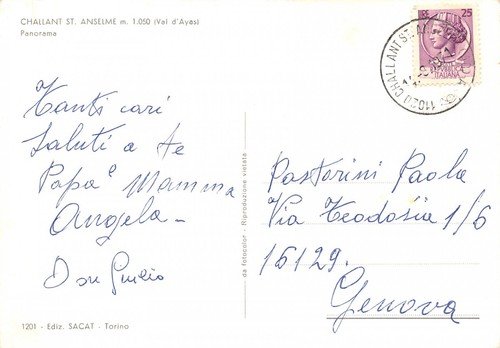 CHALLANT ST. ANSELME m. 1.050 (Val d'Ayas)
Panorama
Tanti cari
saluti a te
Papà e Mamma
Angela -
Don Giulio
1201 - Ediz. SACAT - Torino
da fotocolor - Riproduzione vietata
25
ITALIANA
11020 CHALLANT ST.
Pastorini Paola
Via Teodosia 1/6
16129.
Genova